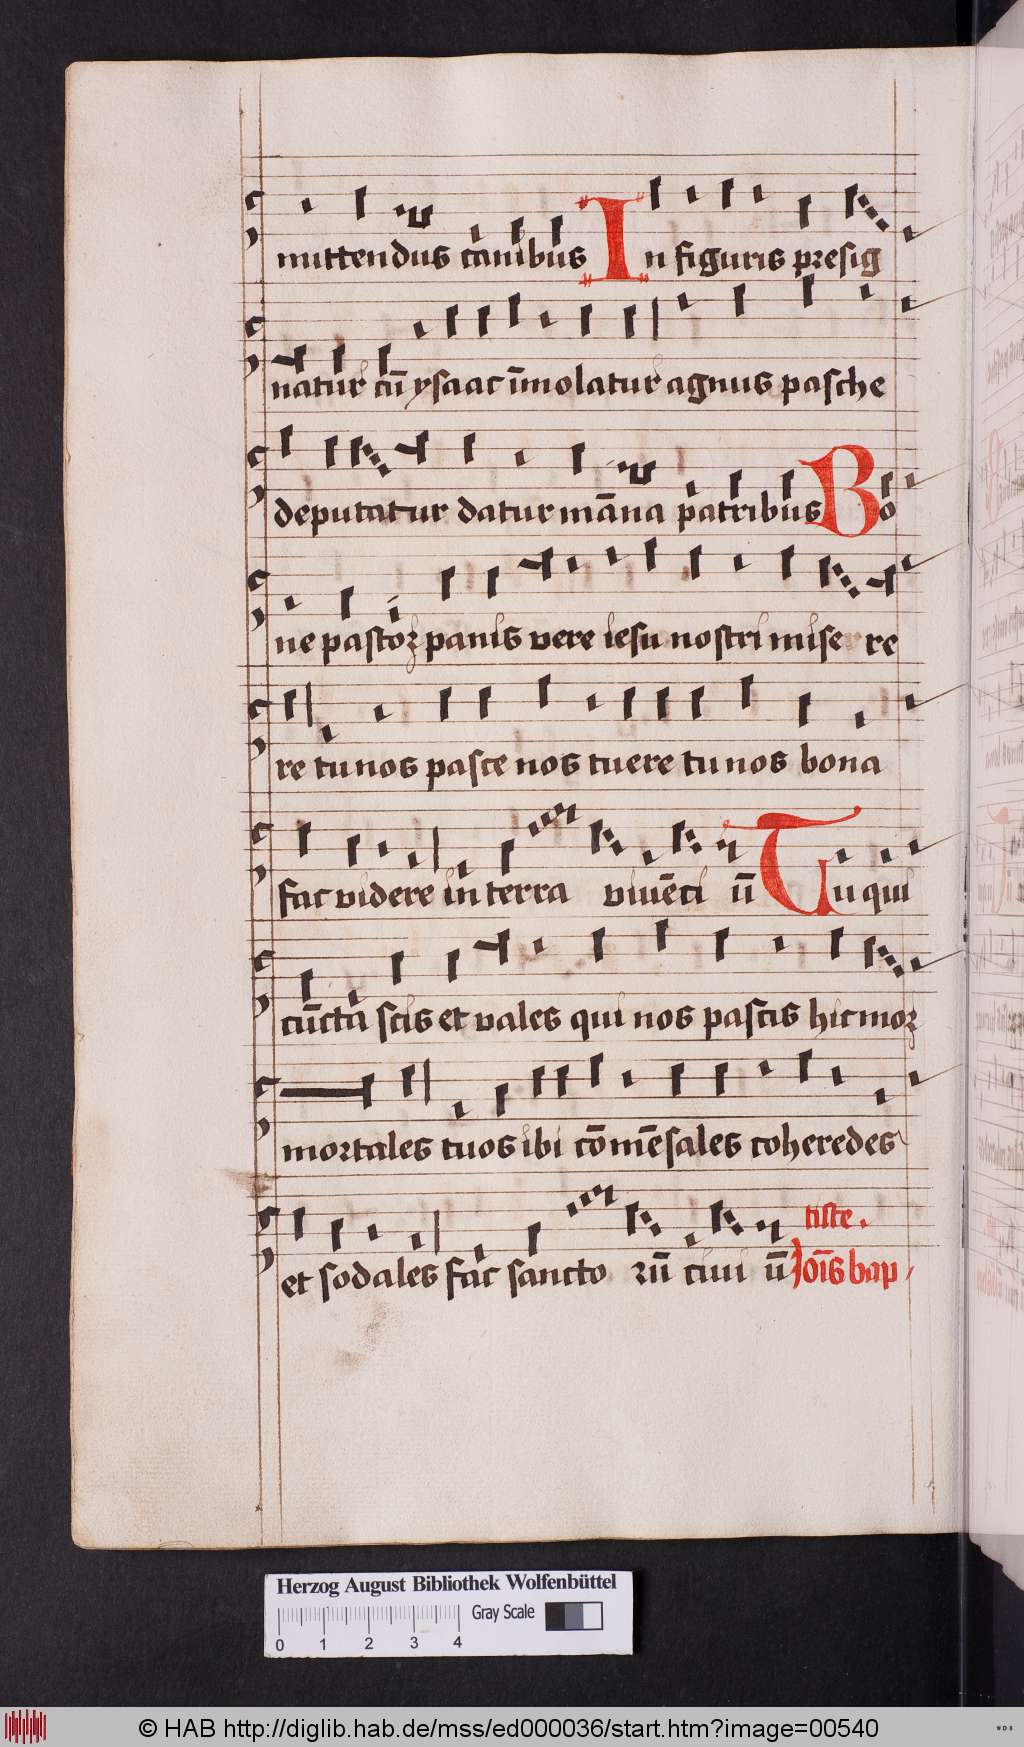 mittendus canibus In figuris presig
natur cū ysaac īmolatur agnus pasche
deputatur datur māna patribus Bo
ne pastor panis vere iesu nostri mise re
re tu nos pasce nos tuere tu nos bona
fac videre in terra viuēti ū Tu qui
cūcta scis et vales qui nos pascis hic mor
mortales tuos ibi cōmēsales coheredes
tiste.
et sodales fac sancto rū ciui ū Joīs bap
Herzog August Bibliothek Wolfenbüttel
Gray Scale
0 1 2 3 4
© HAB http://diglib.hab.de/mss/ed000036/start.htm?image=00540